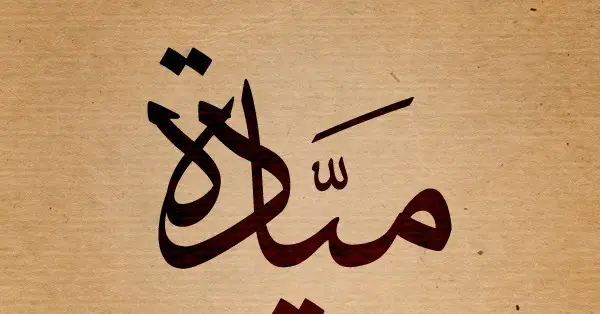 ميَّادة